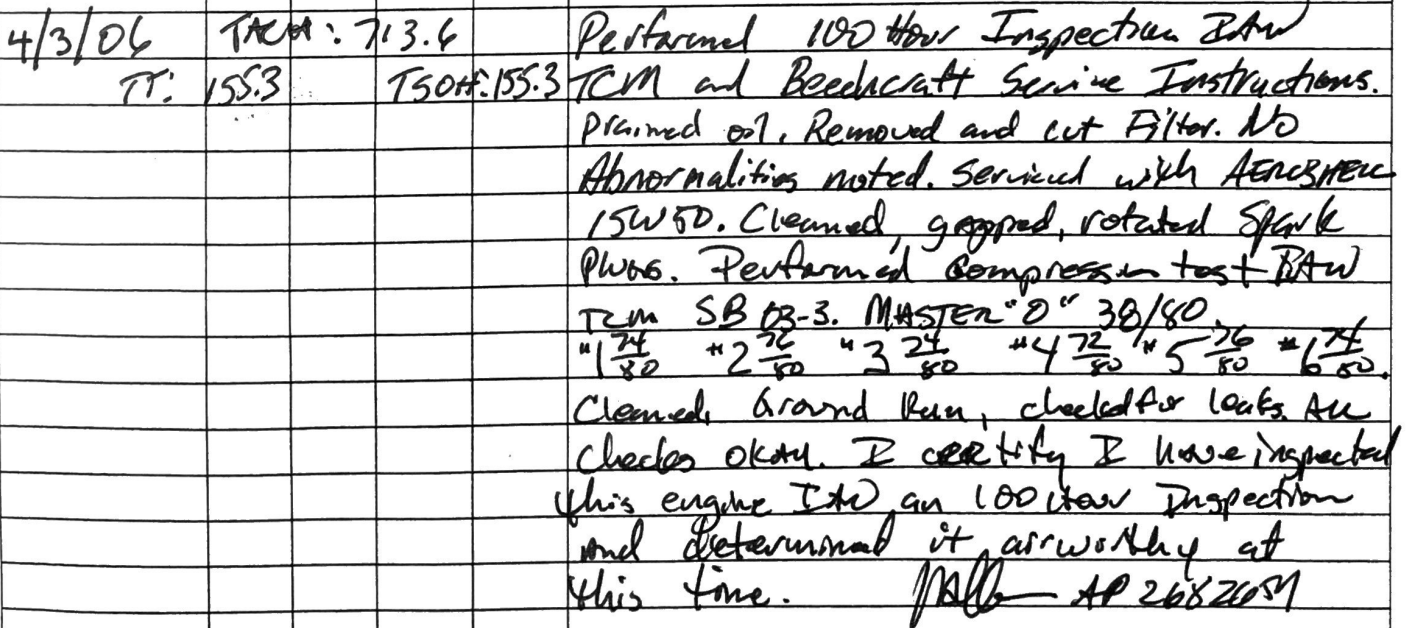 4/3/06 TACH: 713.6 Performed 100 Hour Inspection IAW
TT: 155.3 TSOH: 155.3 TCM and Beechcraft Service Instructions.
Drained oil. Removed and cut Filter. No
Abnormalities noted. Serviced with AEROSHELL
15W50. Cleaned, gapped, rotated Spark
Plugs. Performed Compression test IAW
TCM SB 03-3. MASTER "0" 38/80
#1 74/80 #2 76/80 #3 74/80 #4 72/80 #5 76/80 #6 74/80.
Cleaned, Ground Run, checked for leaks. All
Checks OKAY. I certify I have inspected
this engine IAW an 100 Hour Inspection
and determined it airworthy at
this time. AP 2682654